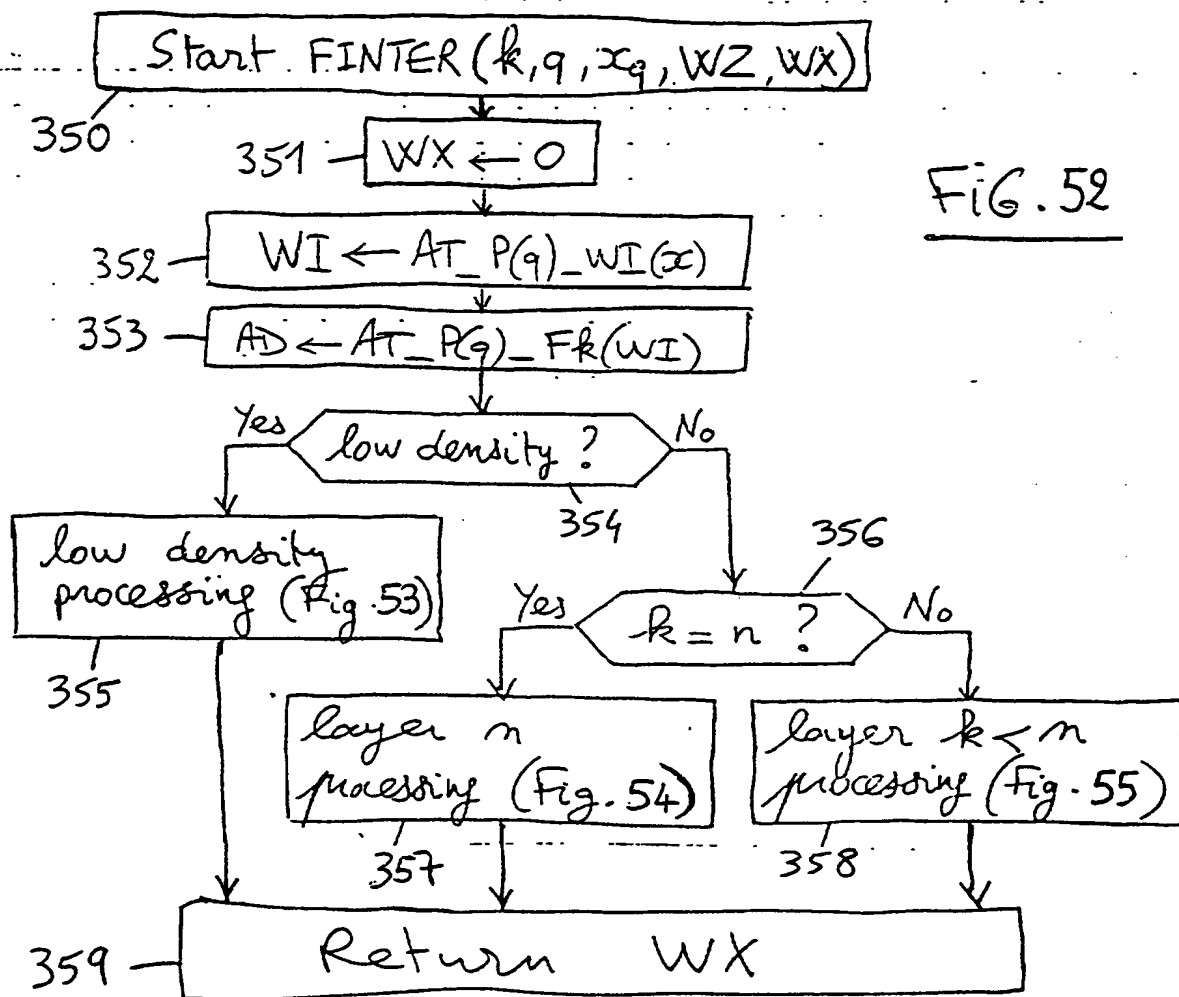 Start FINTER(k, q, x_q, WZ, WX)
350
351
WX ← 0
FiG. 52
352
WI ← AT_P(q)_WI(x)
353
AD ← AT_P(q)_Fk(WI)
Yes
low density ?
No
354
356
low density
processing (Fig. 53)
355
Yes
k = n ?
No
layer n
processing (Fig. 54)
357
layer k < n
processing (Fig. 55)
358
359
Return WX